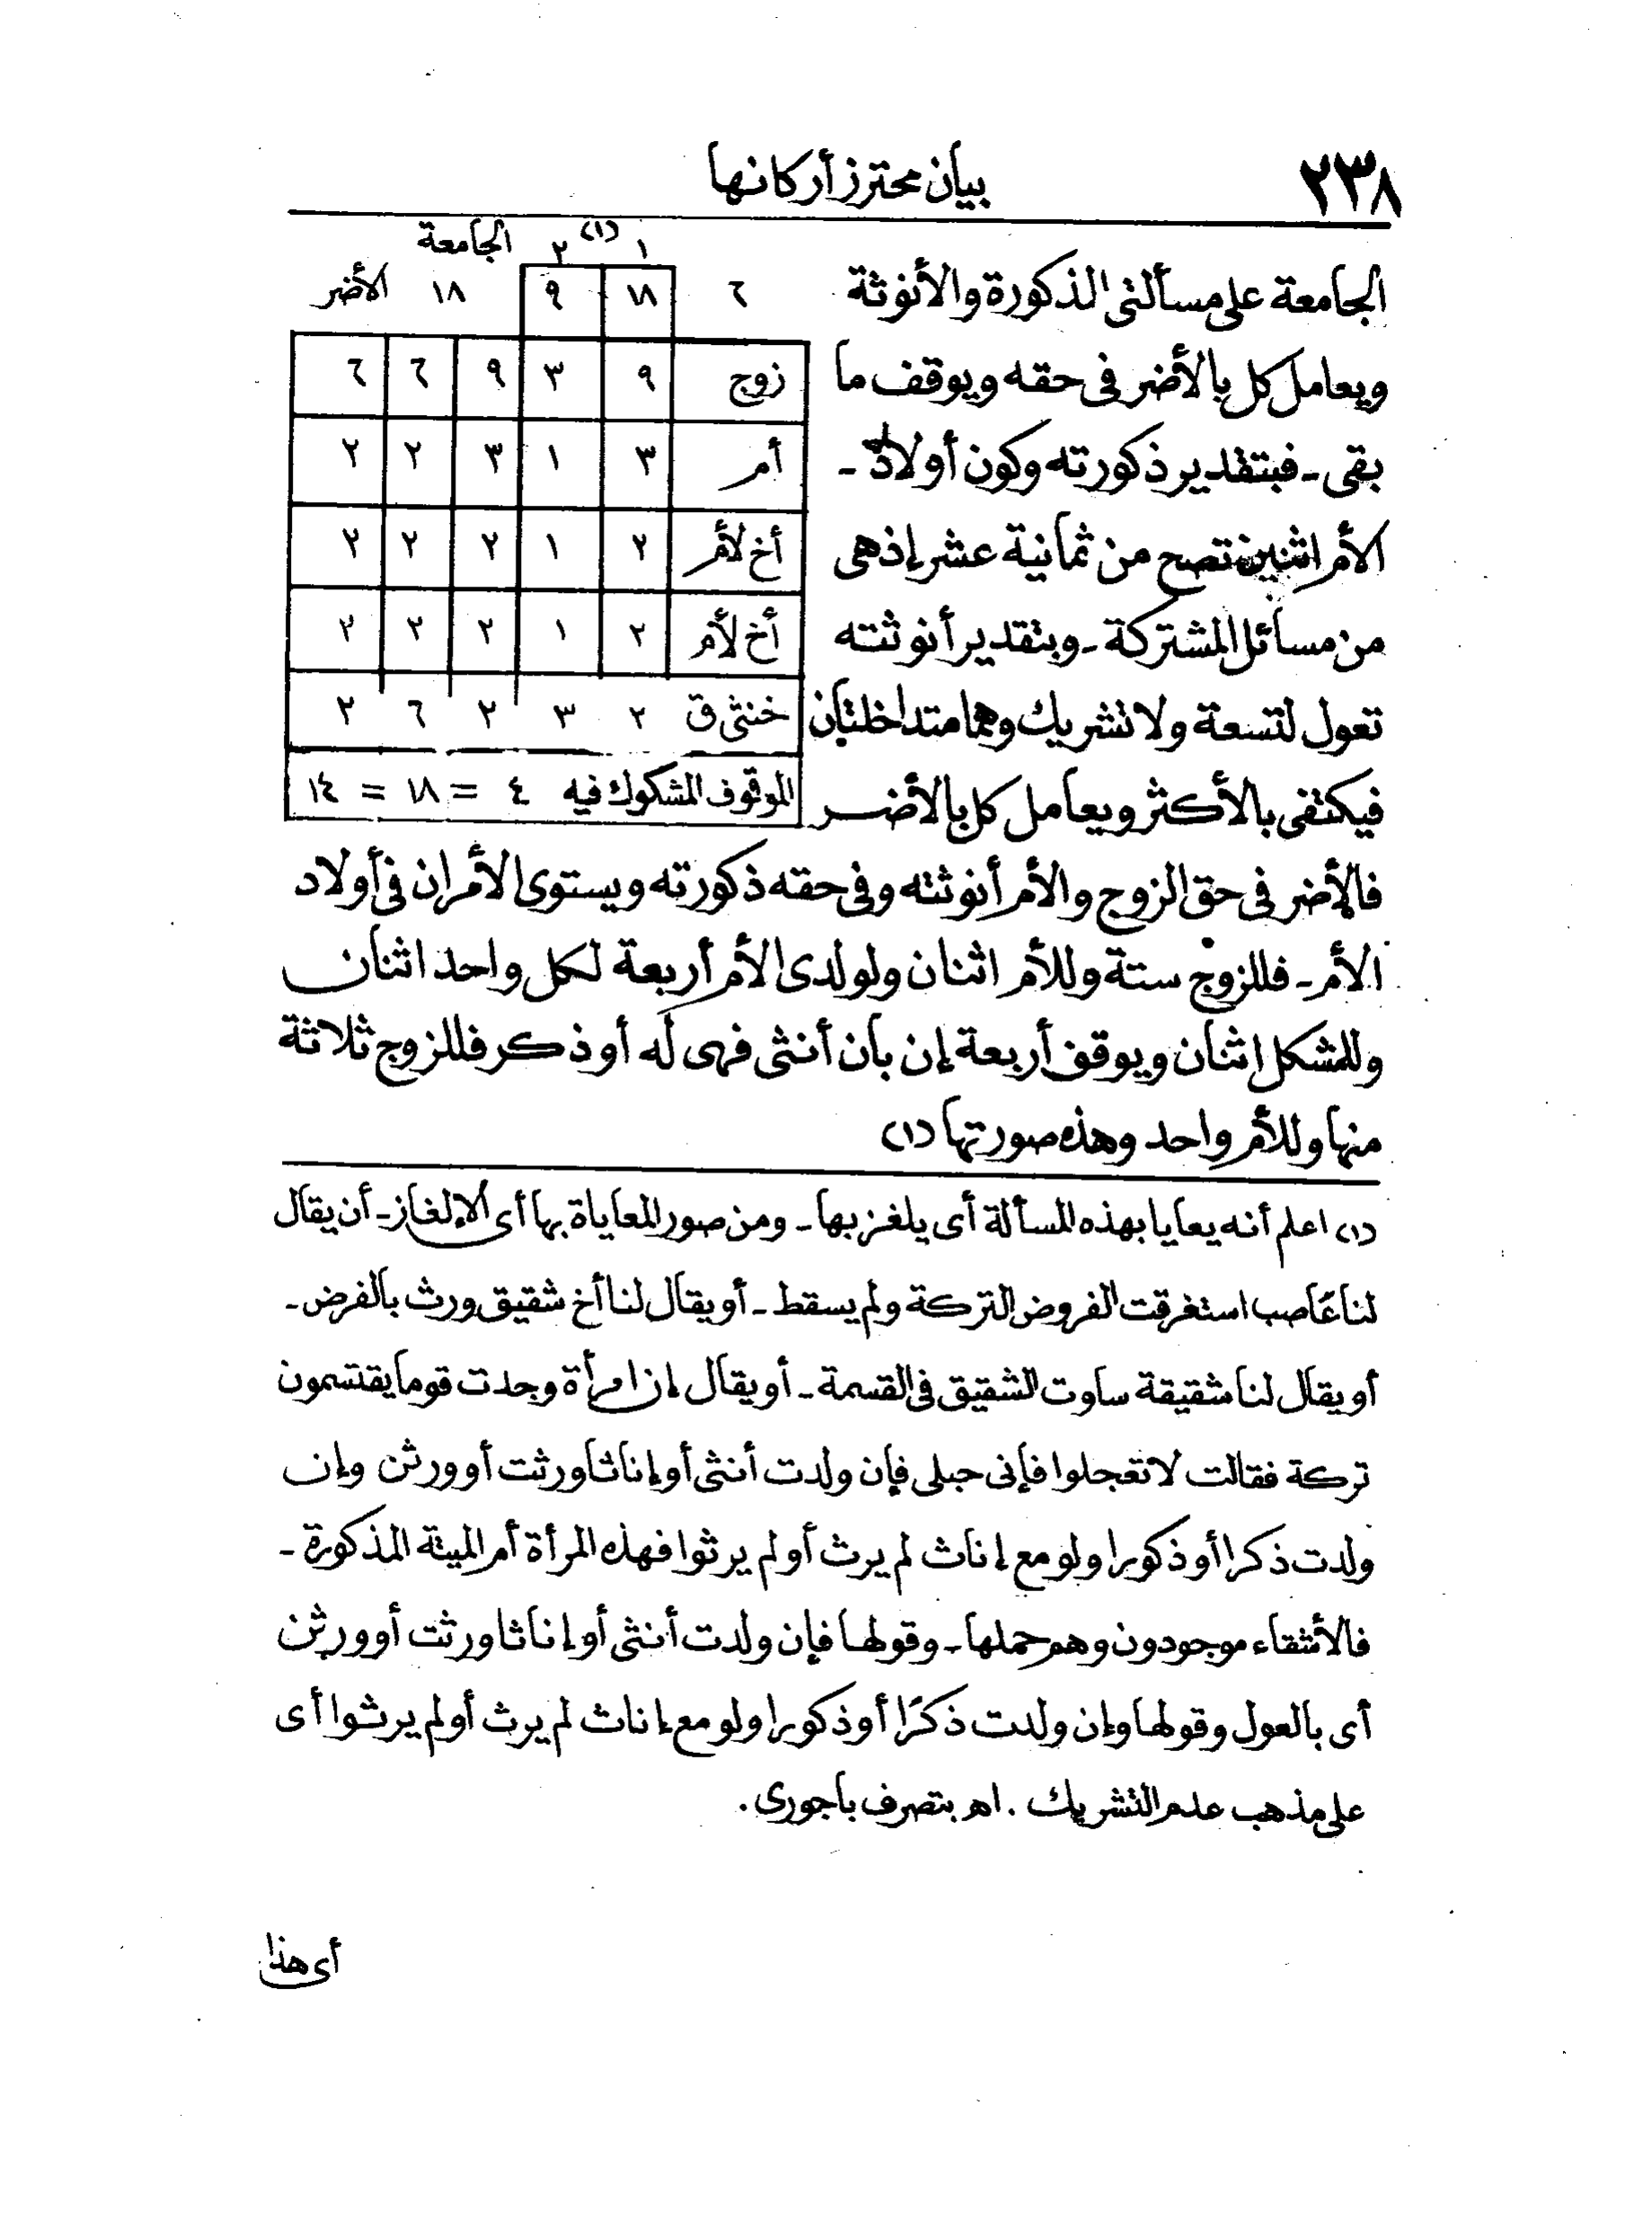 ٢٣٨ بيان محترز أركانها
الجامعة على مسألتى الذكورة والأنوثة
ويعامل كل بالأضر فى حقه ويوقف ما
بقى - فبتقدير ذكورته وكون أولاد -
الأم اثنين تصح من ثمانية عشر إذ هى
من مسائل المشتركة - وبتقدير أنوثته
تعول لتسعة ولا تشريك وهما متداخلتان
فيكتفى بالأكثر ويعامل كل بالأضر
١ (١) ٢ الجامعة
٦ ١٨ ٩ ١٨ الأضر
زوج ٩ ٣ ٩ ٦ ٦
أم ٣ ١ ٣ ٢ ٢
أخ لأم ٢ ١ ٢ ٢ ٢
أخ لأم ٢ ١ ٢ ٢ ٢
خنثى ق ٢ ٣ ٢ ٦ ٢
الموقوف المشكوك فيه ٤ = ١٨ = ١٤
فالأضر فى حق الزوج والأم أنوثته وفى حقه ذكورته ويستوى الأمران فى أولاد
الأم - فللزوج ستة وللأم اثنان ولولدى الأم أربعة لكل واحد اثنان
وللمشكل اثنان ويوقف أربعة إن بان أنثى فهى له أو ذكر فللزوج ثلاثة
منها وللأم واحد وهذه صورتها (١)
(١) اعلم أنه يعايا بهذه المسألة أى يلغز بها - ومن صور المعاياة بها أى الإلغاز - أن يقال
لنا عاصب استغرقت الفروض التركة ولم يسقط - أو يقال لنا أخ شقيق ورث بالفرض -
أو يقال لنا شقيقة ساوت الشقيق فى القسمة - أو يقال إن امرأة وجدت قوما يقتسمون
تركة فقالت لا تعجلوا فإنى حبلى فإن ولدت أنثى أو إناثا ورثت أو ورثن وإن
ولدت ذكرا أو ذكورا ولو مع إناث لم يرث أو لم يرثوا فهذه المرأة أم الميتة المذكورة -
فالأشقاء موجودون وهم حملها - وقولها فإن ولدت أنثى أو إناثا ورثت أو ورثن
أى بالعول وقولها وإن ولدت ذكرًا أو ذكورا ولو مع إناث لم يرث أو لم يرثوا أى
على مذهب عدم التشريك . اهـ بتصرف باجورى .
أى هذا